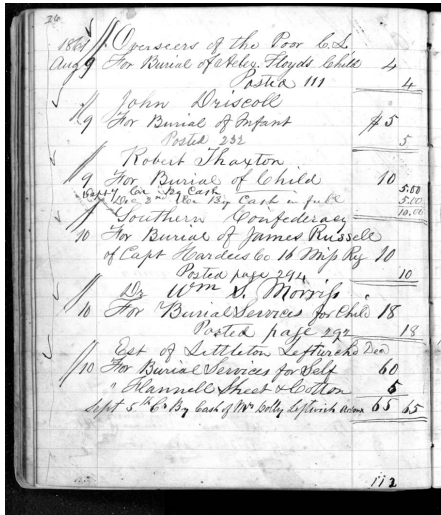 26
1861 // Overseers of the Poor C. L.
Aug 9 For Burial of Alex. Floyds Child 4
Posted 111 4
// John Driscoll
9 For Burial of Infant $5
Posted 232 5
// Robert Thaxton
9 For Burial of Child 10
By Cash 5.00
Dec 2nd By Cash in full 5.00
// Southern Confederacy 10.00
10 For Burial of James Russell
of Capt Hardees Co 16 Miss Reg 10
Posted page 294 10
// Dr Wm S. Morris
10 For Burial Services for Child 18
Posted page 292 18
Est of Littleton Leftwich Decd
// 10 For Burial Services for Self 60
" Flannell Sheet & Cotton 5
Sept 5th Cr By Cash of Leftwich 65 65
112